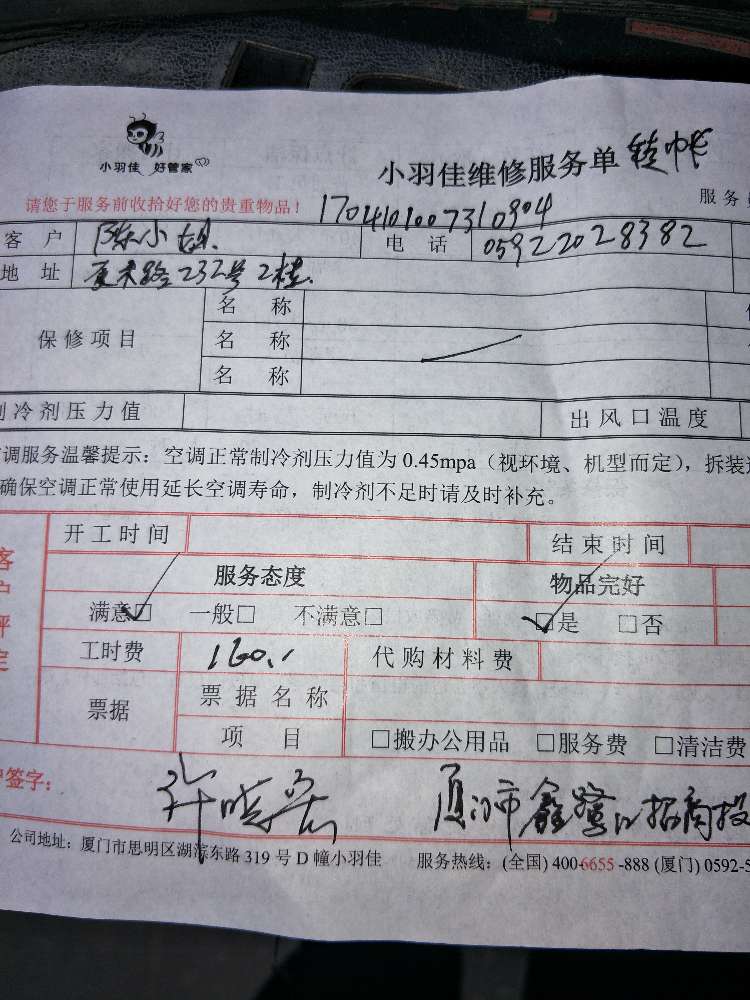 小羽佳 好管家
小羽佳维修服务单 转帐
请您于服务前收拾好您的贵重物品！ 1704101007310904 服务
客户 陈小姐 电话 05922028382
地址 路232号2楼
保修项目 名称
名称
名称
制冷剂压力值 出风口温度
调服务温馨提示：空调正常制冷剂压力值为 0.45mpa（视环境、机型而定），拆装
确保空调正常使用延长空调寿命，制冷剂不足时请及时补充。
客户评定 开工时间 结束时间
服务态度 物品完好
满意□ 一般□ 不满意□ □是 □否
工时费 160 代购材料费
票据 票据名称
项目 □搬办公用品 □服务费 □清洁费
签字： 许晓 厦门市鑫 招商投
公司地址：厦门市思明区湖滨东路 319 号 D 幢小羽佳 服务热线：(全国) 400-6655-888 (厦门) 0592-5